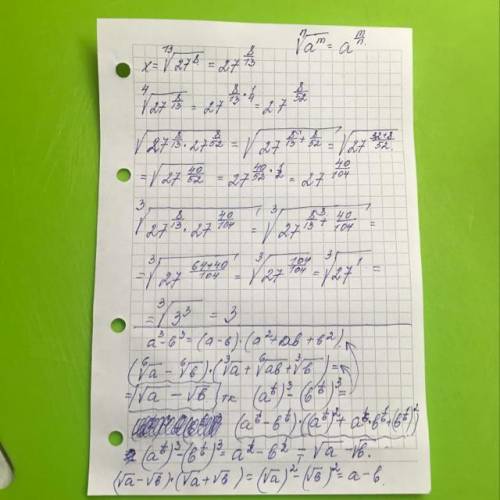 ⁿ√aᵐ = a^(m/n)
x = ¹³√27⁸ = 27^(8/13)
⁴√27^(8/13) = 27^(8/13 · 1/4) = 27^(8/52)
√(27^(8/13) · 27^(8/52)) = √27^(8/13 + 8/52) = √27^((32+8)/52)
= √27^(40/52) = 27^(40/52 · 1/2) = 27^(40/104)
³√(27^(8/13) · 27^(40/104)) = ³√27^(8/13 + 40/104) =
= ³√27^((64+40)/104) = ³√27^(104/104) = ³√27¹ =
= ³√3³ = 3
a³-b³ = (a-b)·(a²+ab+b²)
(⁶√a - ⁶√b)·(³√a + ⁶√ab + ³√b) =
= √a - √b тк (a^(1/6))³ - (b^(1/6))³ =
(a^(1/6) - b^(1/6))·((a^(1/6))² + a^(1/6)·b^(1/6) + (b^(1/6))²)
(a^(1/6))³ - (b^(1/6))³ = a^(1/2) - b^(1/2) = √a - √b.
(√a - √b)·(√a + √b) = (√a)² - (√b)² = a - b.